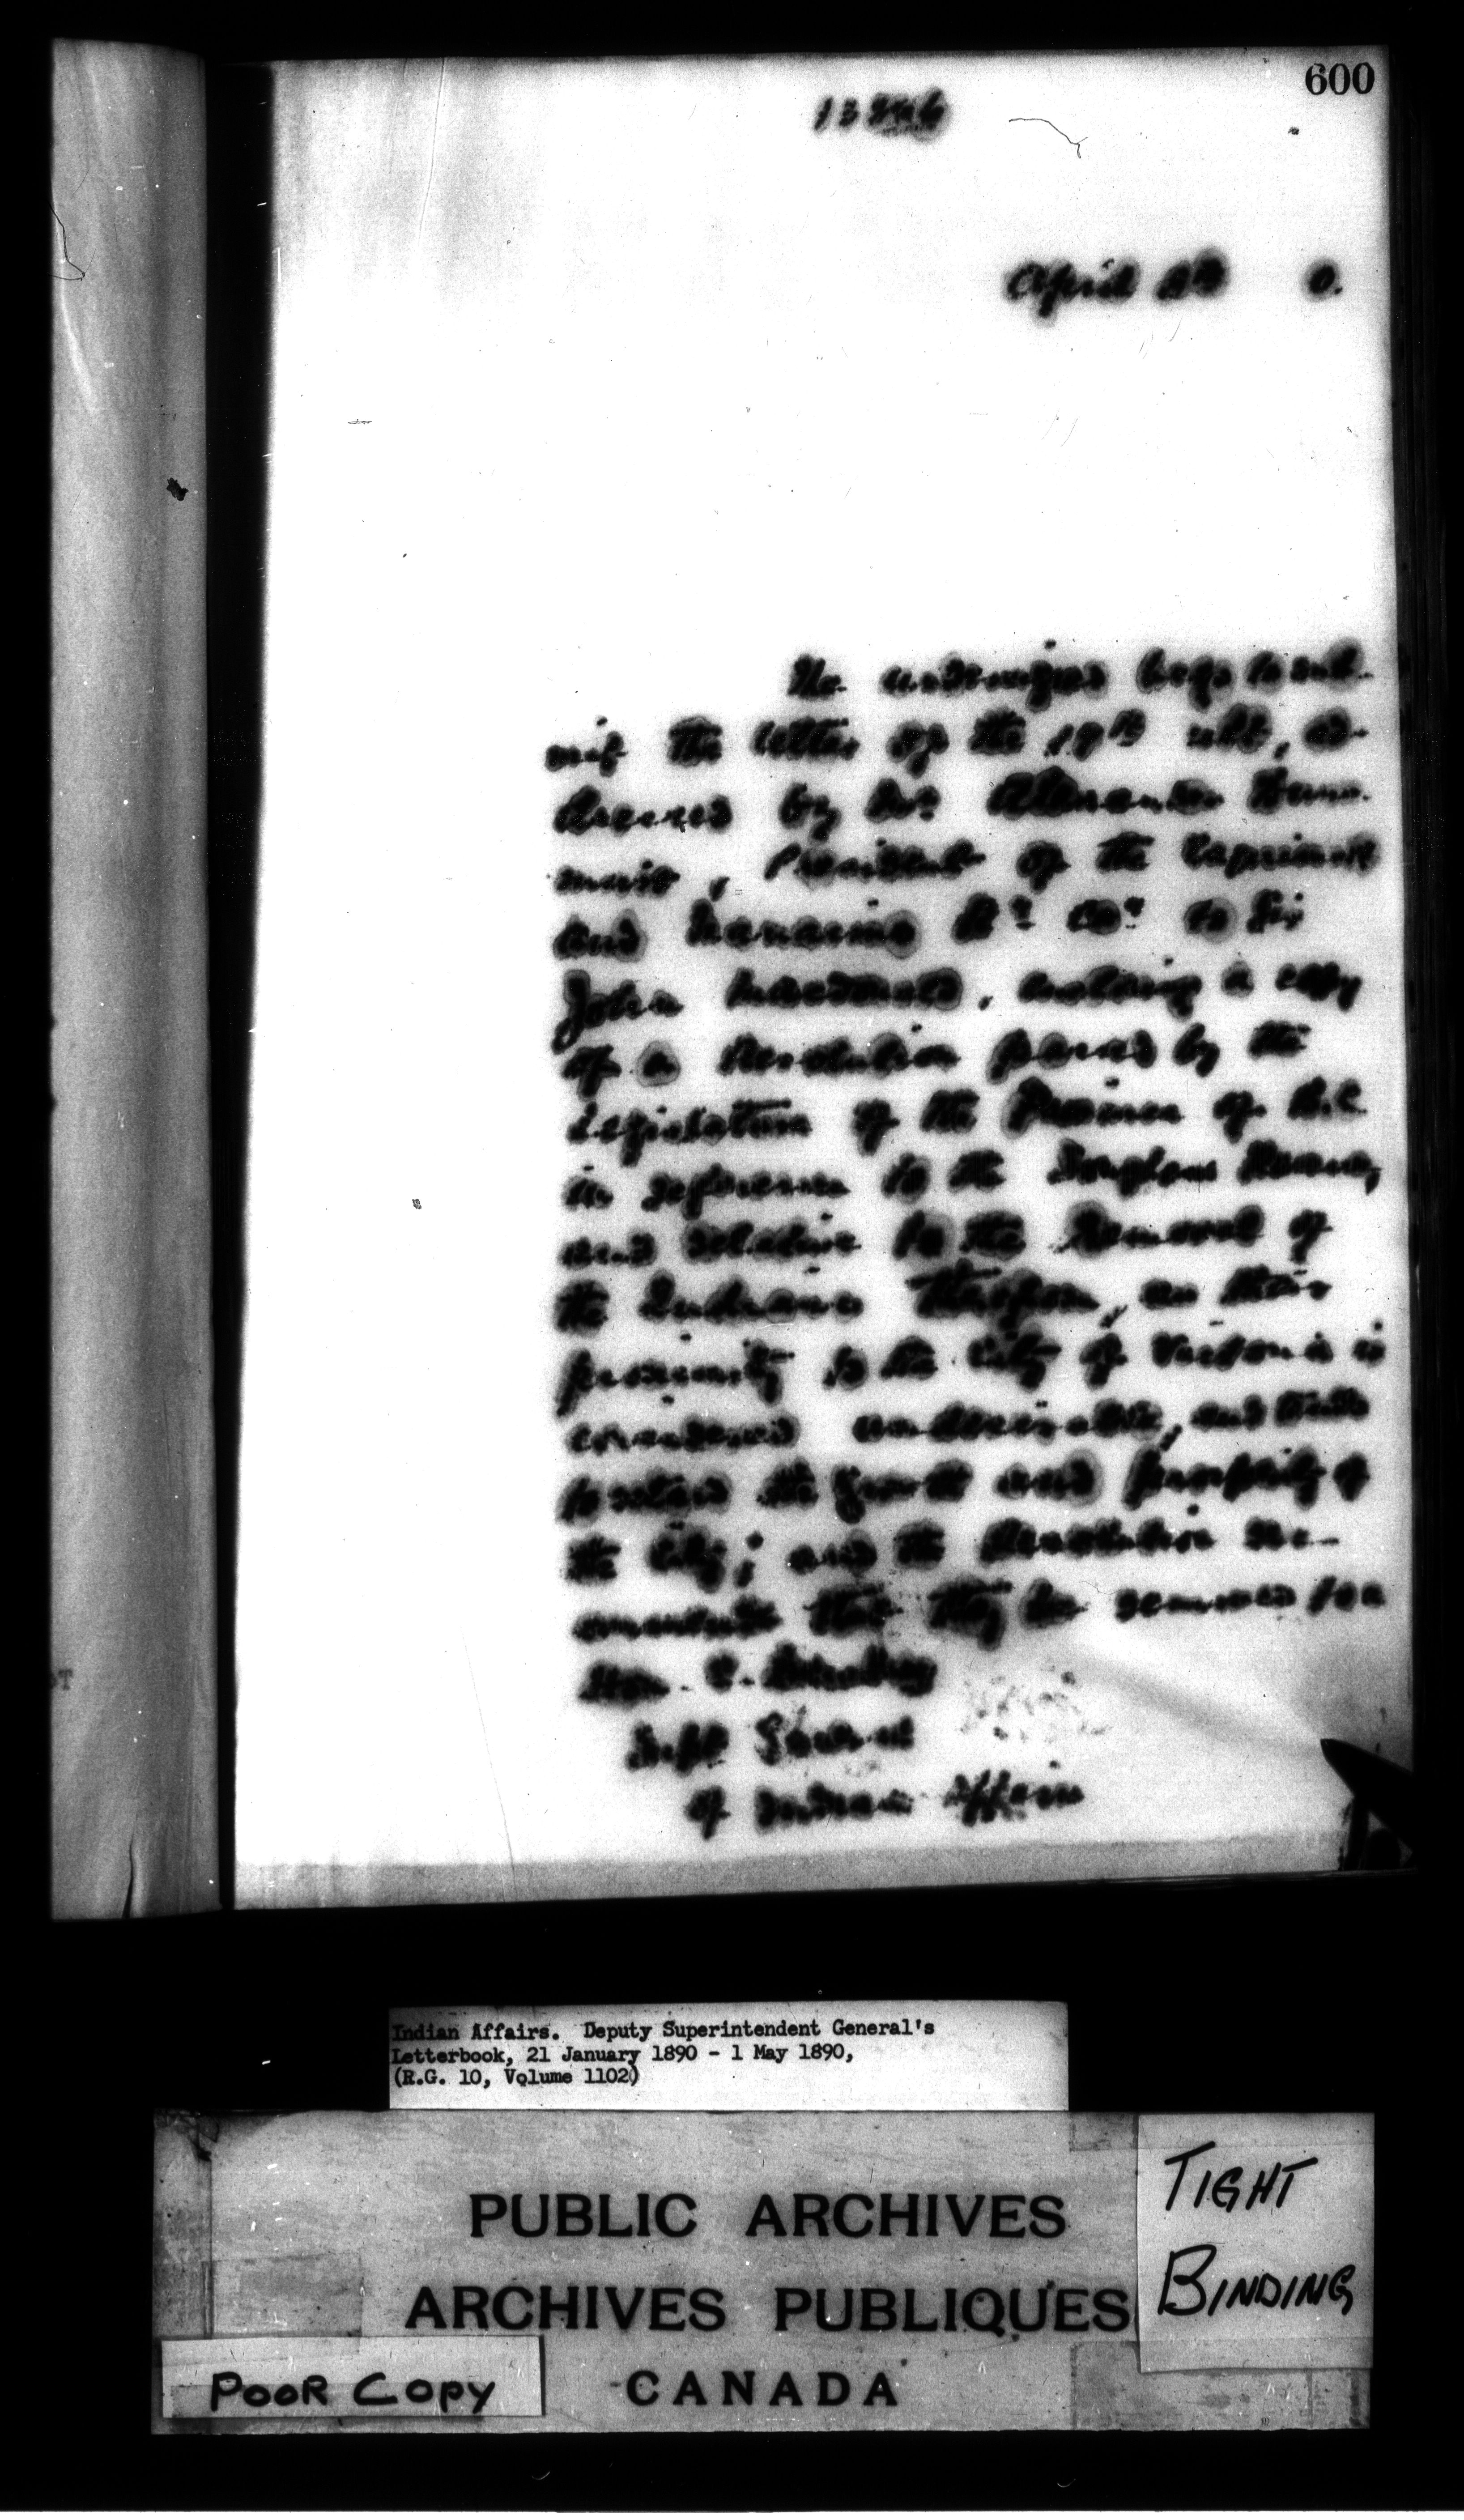 600
April
The undersigned begs to sub-
mit the letter of the 19th ult, ad-
dressed by Mr Alexander Duns-
muir, President of the Esquimalt
and Nanaimo Ry Coy to Sir
John Macdonald, enclosing a copy
of a Resolution passed by the
Legislature of the Province of B.C.
in reference to the Songhees Reserve,
and relative to the removal of
the Indians therefrom, as their
proximity to the City of Victoria is
considered undesirable, and tends
to retard the growth and prosperity of
the City; and the Resolution rec-
ommends that they be removed to a
Hon. E. Dewdney
Supt General
of Indian Affairs
Indian Affairs. Deputy Superintendent General's
Letterbook, 21 January 1890 - 1 May 1890,
(R.G. 10, Volume 1102)
PUBLIC ARCHIVES
ARCHIVES PUBLIQUES
CANADA
TIGHT
BINDING
POOR COPY